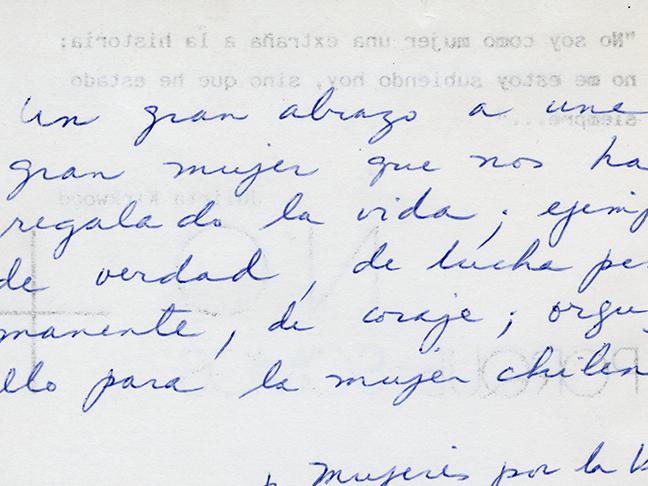 "No soy como mujer una extraña a la historia:
no me estoy subiendo hoy, sino que he estado
siempre..."
Julieta Kirkwood
NO +
PORQUE
Un gran abrazo a une
gran mujer que nos ha
regalado la vida; ejemp
de verdad, de lucha per
manente, de coraje; orgu
llo para la mujer chilen
Mujeres por la V